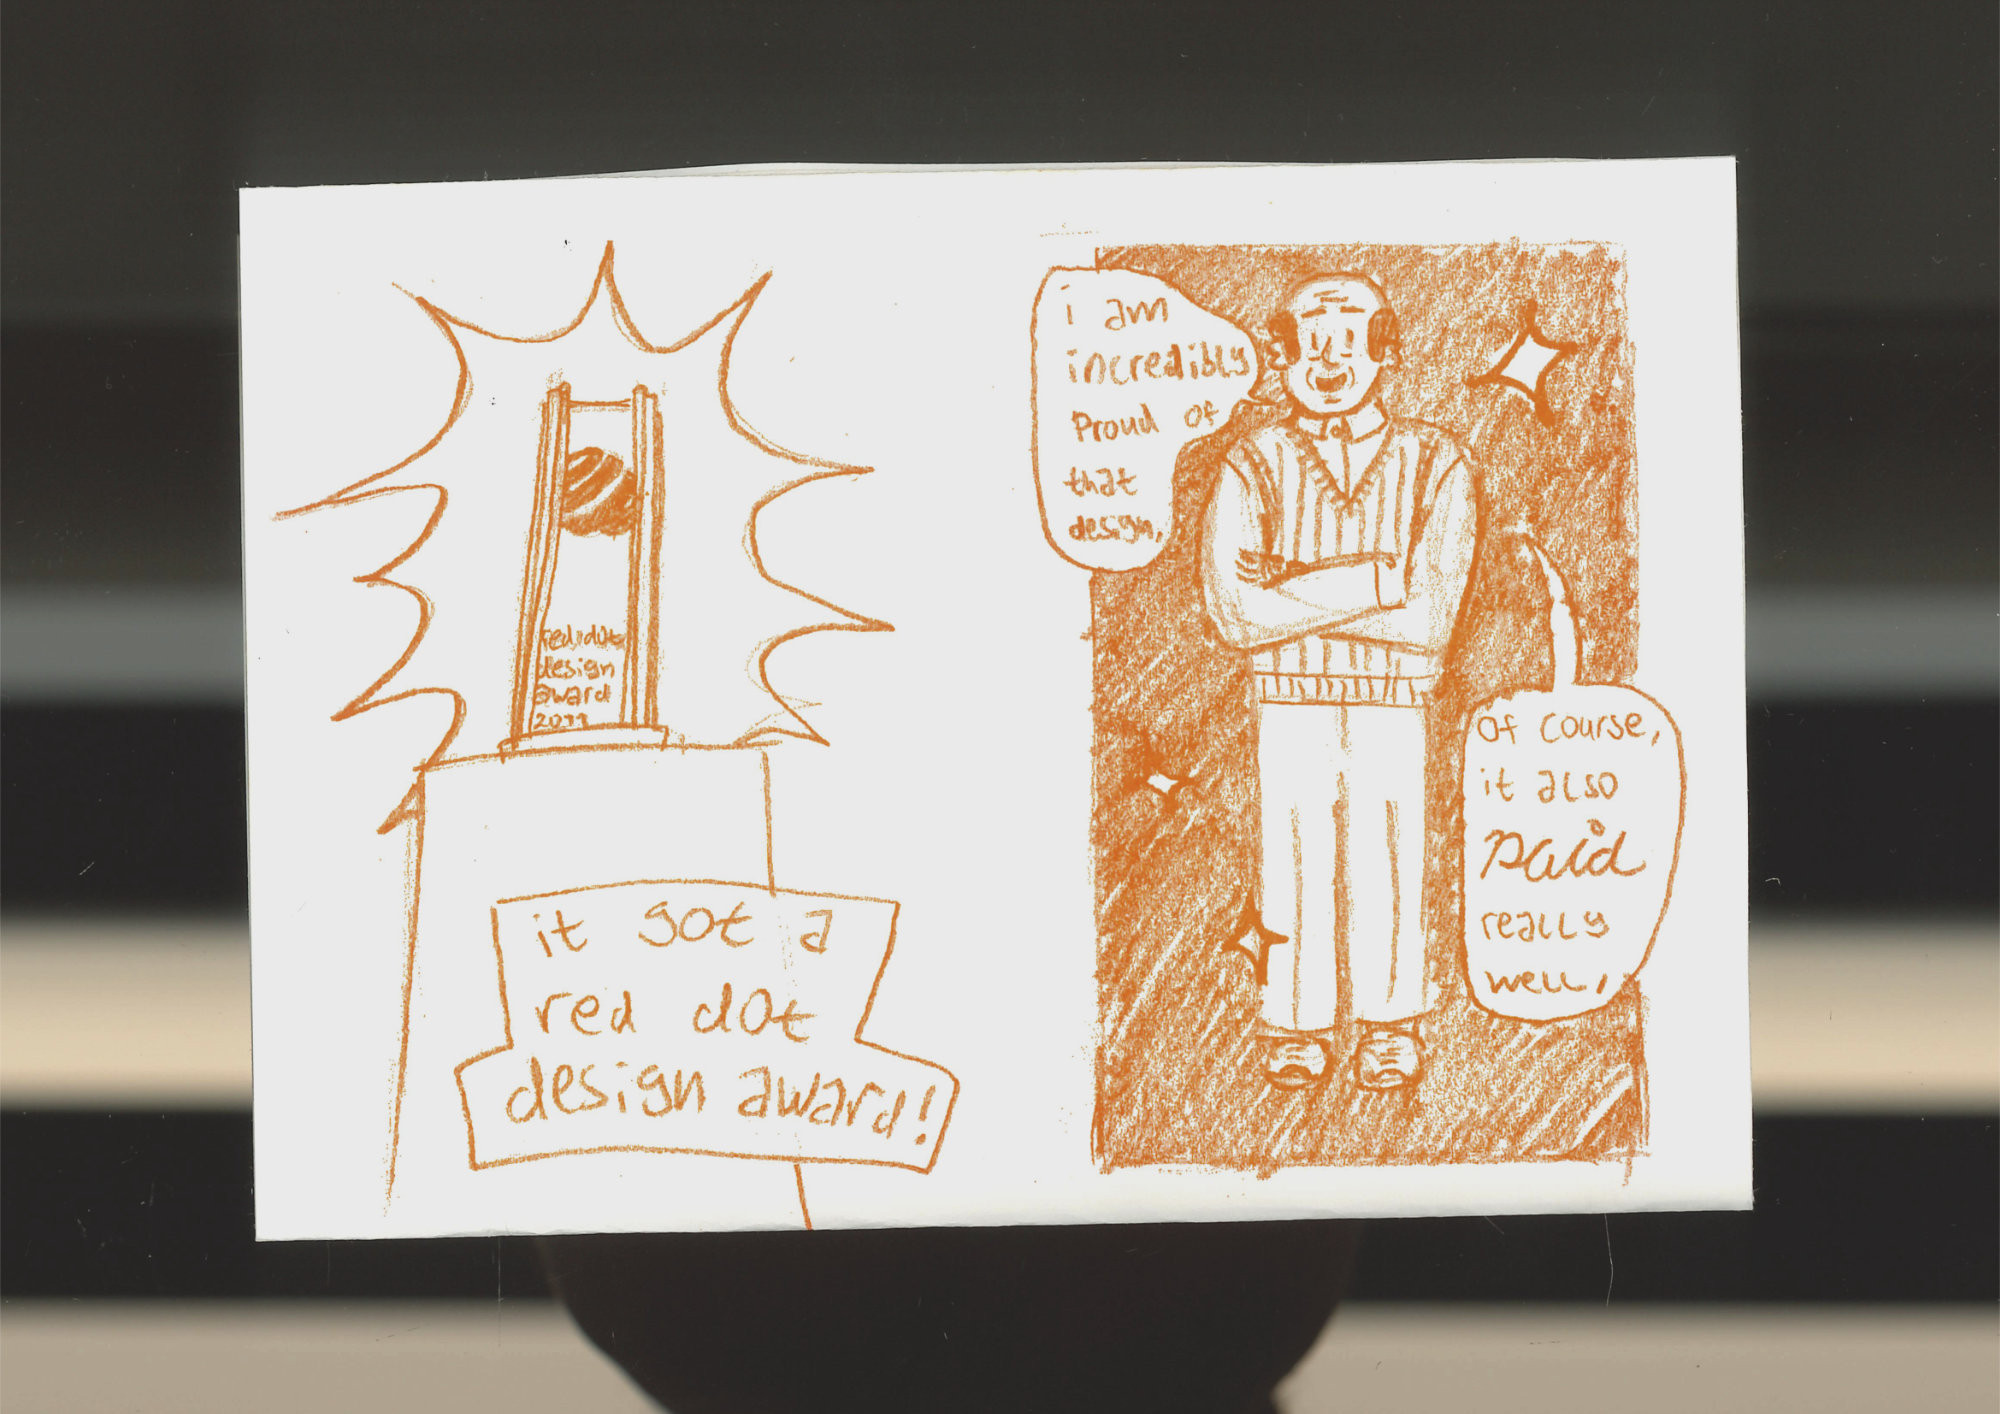 red dot
design
award
2011
it got a
red dot
design award!
i am
incredibly
Proud of
that
design,
of course,
it also
paid
really
well,